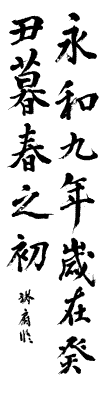 永和九年歲在癸
丑暮春之初